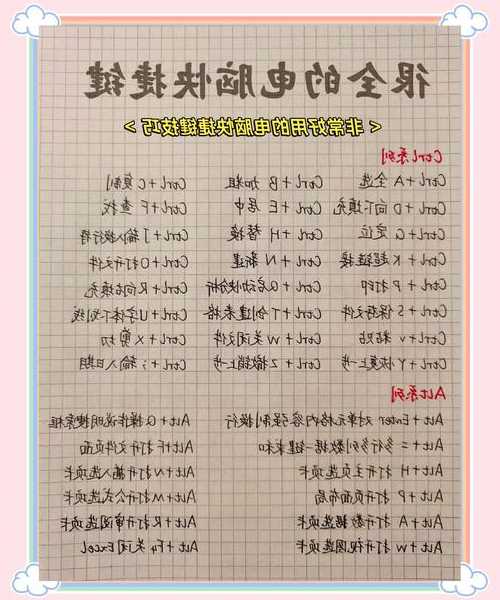 很全的电脑快捷键
< 非常好用的电脑快捷键技巧 >
Ctrl系列
Ctrl + A 全选 Ctrl + B 加粗 Ctrl + C 复制
Ctrl + D 向下填充 Ctrl + E 居中 Ctrl + F 查找
Ctrl + G 定位 Ctrl + H 替换 Ctrl + J 输入换行符
Ctrl + K 超链接 Ctrl + N 新建 Ctrl + O 打开文件
Ctrl + P 打印 Ctrl + Q 启动快分析 Ctrl + R 向右填充
Ctrl + S 保存文件 Ctrl + T 创建表格 Ctrl + U 字体下划线
Ctrl + v 粘贴 Ctrl + w 关闭文件 Ctrl + X 剪切
Ctrl + Y 恢复上一步 Ctrl + Z 撤销上一步 Ctrl + ; 输入日期
Alt系列
Alt + Enter 对单元格内容强制换行 Alt + Q 操作说明搜索框
Alt + = 多行多列数据一键求和 Alt + F 打开文件页面
Alt + H 打开主页选项卡 Alt + N 打开插入选项卡
Alt + P 打开页面布局 Alt + M 打开公式选项卡
Alt + A 打开数据选项卡 Alt + R 打开审阅选项卡
Alt + w 打开视图选项卡 Alt + F4 关闭Excel